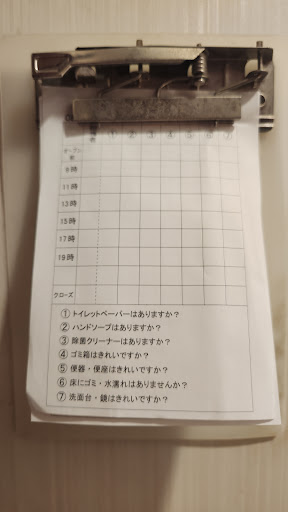 ① ② ③ ④ ⑤ ⑥ ⑦
オープン前
9時
11時
13時
15時
17時
19時
クローズ
① トイレットペーパーはありますか？
② ハンドソープはありますか？
③ 除菌クリーナーはありますか？
④ ゴミ箱はきれいですか？
⑤ 便器・便座はきれいですか？
⑥ 床にゴミ・水濡れはありませんか？
⑦ 洗面台・鏡はきれいですか？